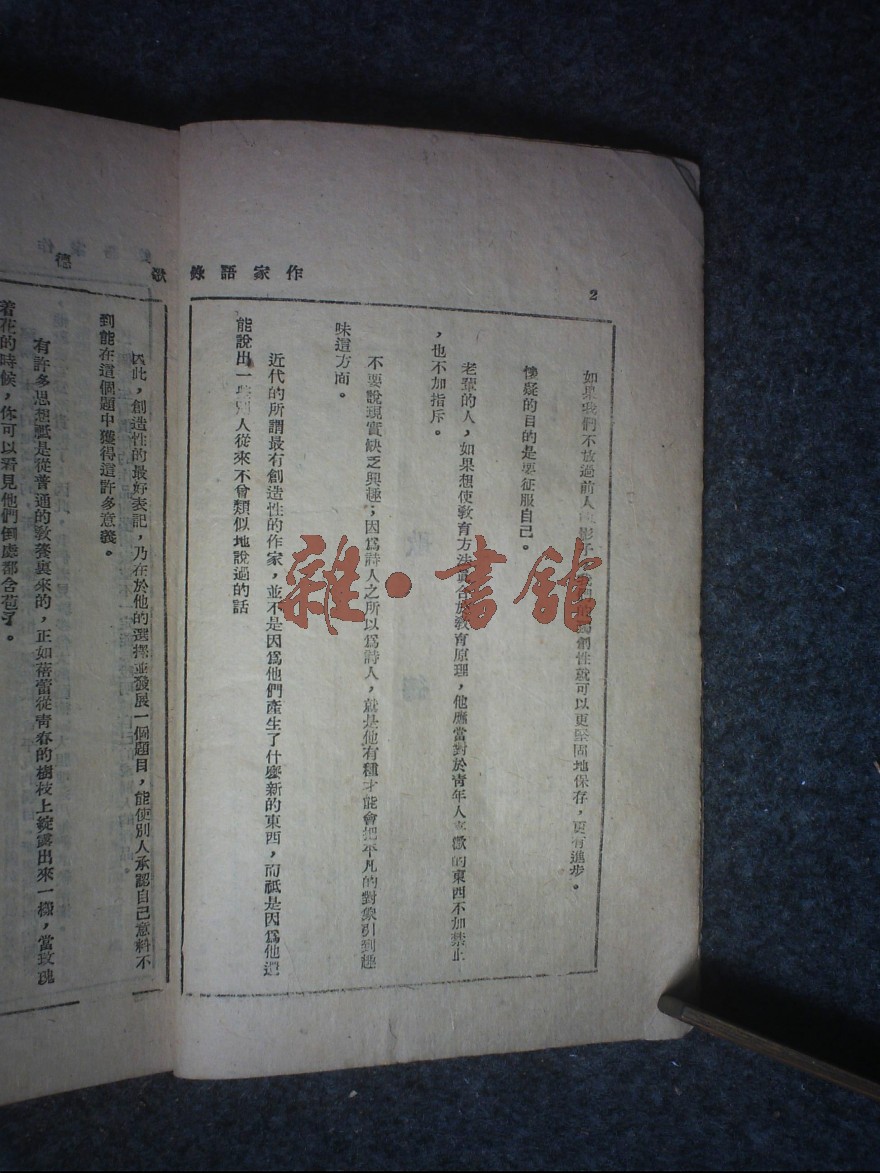 作家語錄
2
如果我們不放過前人 獨創性就可以更堅固地保存，更有進步。
懷疑的目的是要征服自己。
老輩的人，如果想使教育方法 合於教育原理，他應當對於青年人 歡的東西不加禁止
，也不加指斥。
不要說現實缺乏興趣；因爲詩人之所以爲詩人，就是他有種才能會把平凡的對象引到趣
味這方面。
近代的所謂最有創造性的作家，並不是因爲他們產生了什麼新的東西，而祗是因爲他還
能說出一些別人從來不曾類似地說過的話
歌德
因此，創造性的最好表記，乃在於他的選擇並發展一個題目，能使別人承認自己意料不
到能在這個題中獲得這許多意義。
有許多思想祗是從普通的教養裏來的，正如蓓蕾從青春的樹枝上綻露出來一樣，當玫瑰
着花的時候，你可以看見他們倒處都含苞了。
雜·書舘